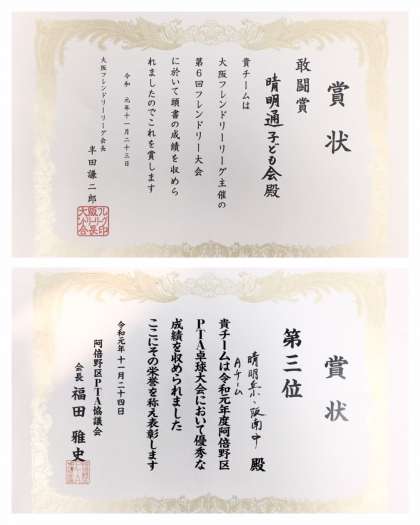 賞状
敢闘賞
晴明通子ども会殿
貴チームは
大阪フレンドリーリーグ主催の
第6回フレンドリー大会
に於いて頭書の成績を収めら
れましたのでこれを賞します
令和元年十一月二十三日
大阪フレンドリーリーグ会長
半田謙二郎
賞状
第三位
晴明丘・阪南中
Aチーム
殿
貴チームは令和元年度阿倍野区
PTA卓球大会において優秀な
成績を収められました
ここにその栄誉を称え表彰します
令和元年十一月二十四日
阿倍野区PTA協議会
会長 福田雅史